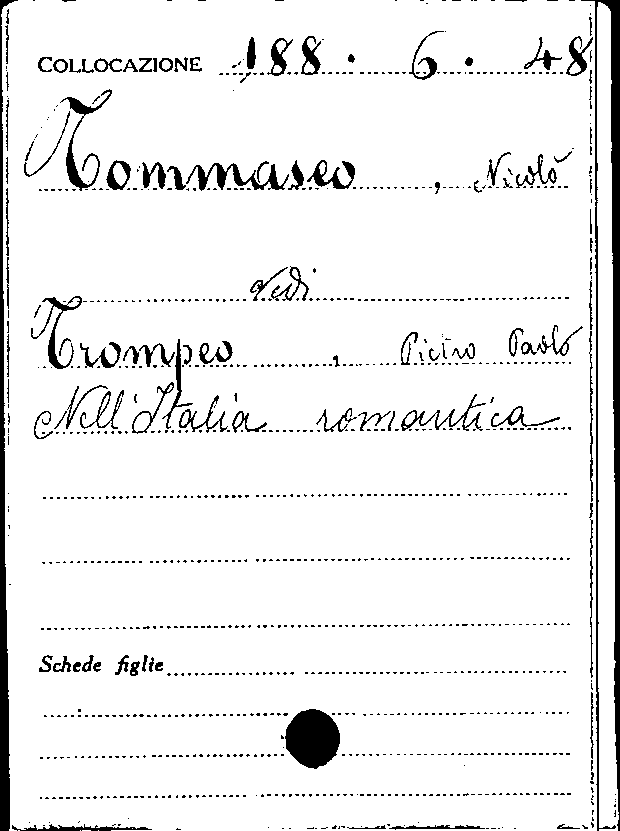 COLLOCAZIONE 188. 6. 48
Tommaseo, Nicolò
vedi
Trompeo, Pietro Paolo
Nell'Italia romantica
Schede figlie